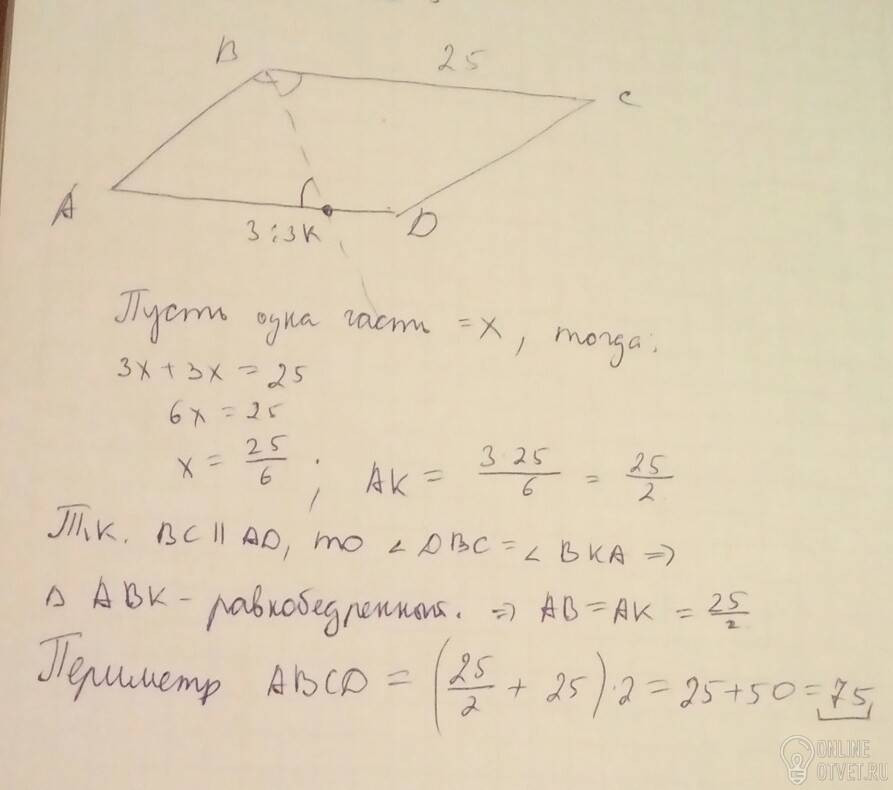 B
25
C
A
3:3
K
D
Пусть одна часть = x, тогда:
3x + 3x = 25
6x = 25
x = 25/6 ; AK = 3·25/6 = 25/2
Т.к. BC || AD, то ∠ DBC = ∠ BKA ⇒
△ ABK - равнобедренный. ⇒ AB = AK = 25/2
Периметр ABCD = (25/2 + 25)·2 = 25+50 = 75
ONLINE
OTVET.RU